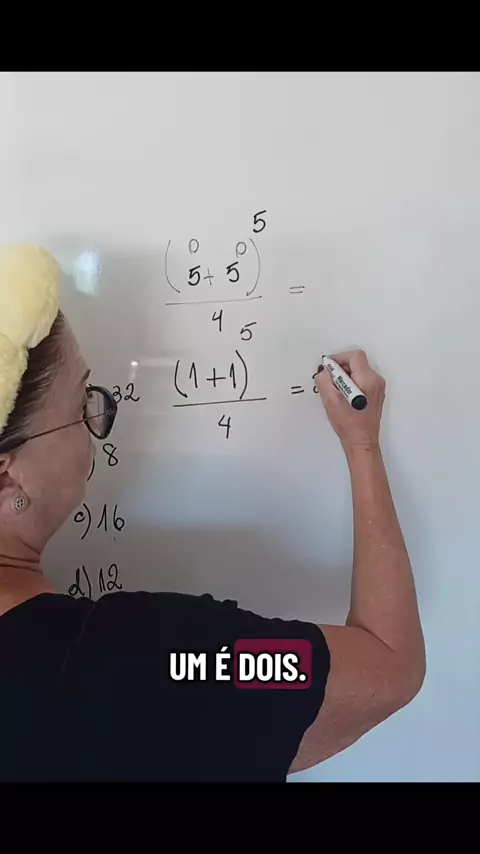 5
0 0
(5+ 5) =
4
5
(1+1) =
4
32
) 8
c) 16
d) 12
UM É DOIS.